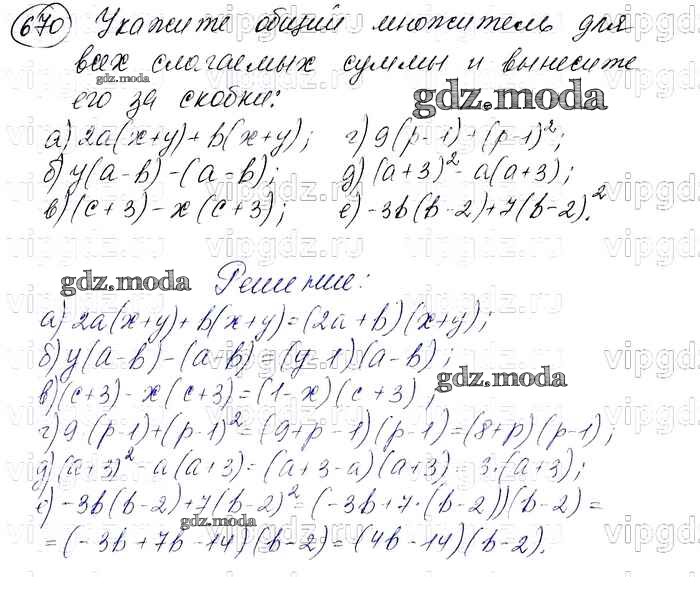 670 Укажите общий множитель для
всех слагаемых суммы и вынесите
gdz.moda
его за скобки:
gdz.moda
а) 2a(x+y)+b(x+y); г) 9(p-1)+(p-1)²;
б) y(a-b)-(a-b); д) (a+3)²-a(a+3);
в) (c+3)-x(c+3); е) -3b(b-2)+7(b-2)².
gdz.moda Решение:
а) 2a(x+y)+b(x+y)=(2a+b)(x+y);
б) y(a-b)-(a-b)=(y-1)(a-b);
gdz.moda
в) (c+3)-x(c+3)=(1-x)(c+3);
г) 9(p-1)+(p-1)²=(9+p-1)(p-1)=(8+p)(p-1);
д) (a+3)²-a(a+3)=(a+3-a)(a+3)=3·(a+3);
е) -3b(b-2)+7(b-2)²=(-3b+7·(b-2))(b-2)=
gdz.moda
=(-3b+7b-14)(b-2)=(4b-14)(b-2).